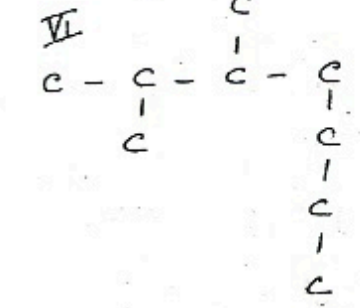 C
VI
C - C - C - C
| |
C C
|
C
|
C